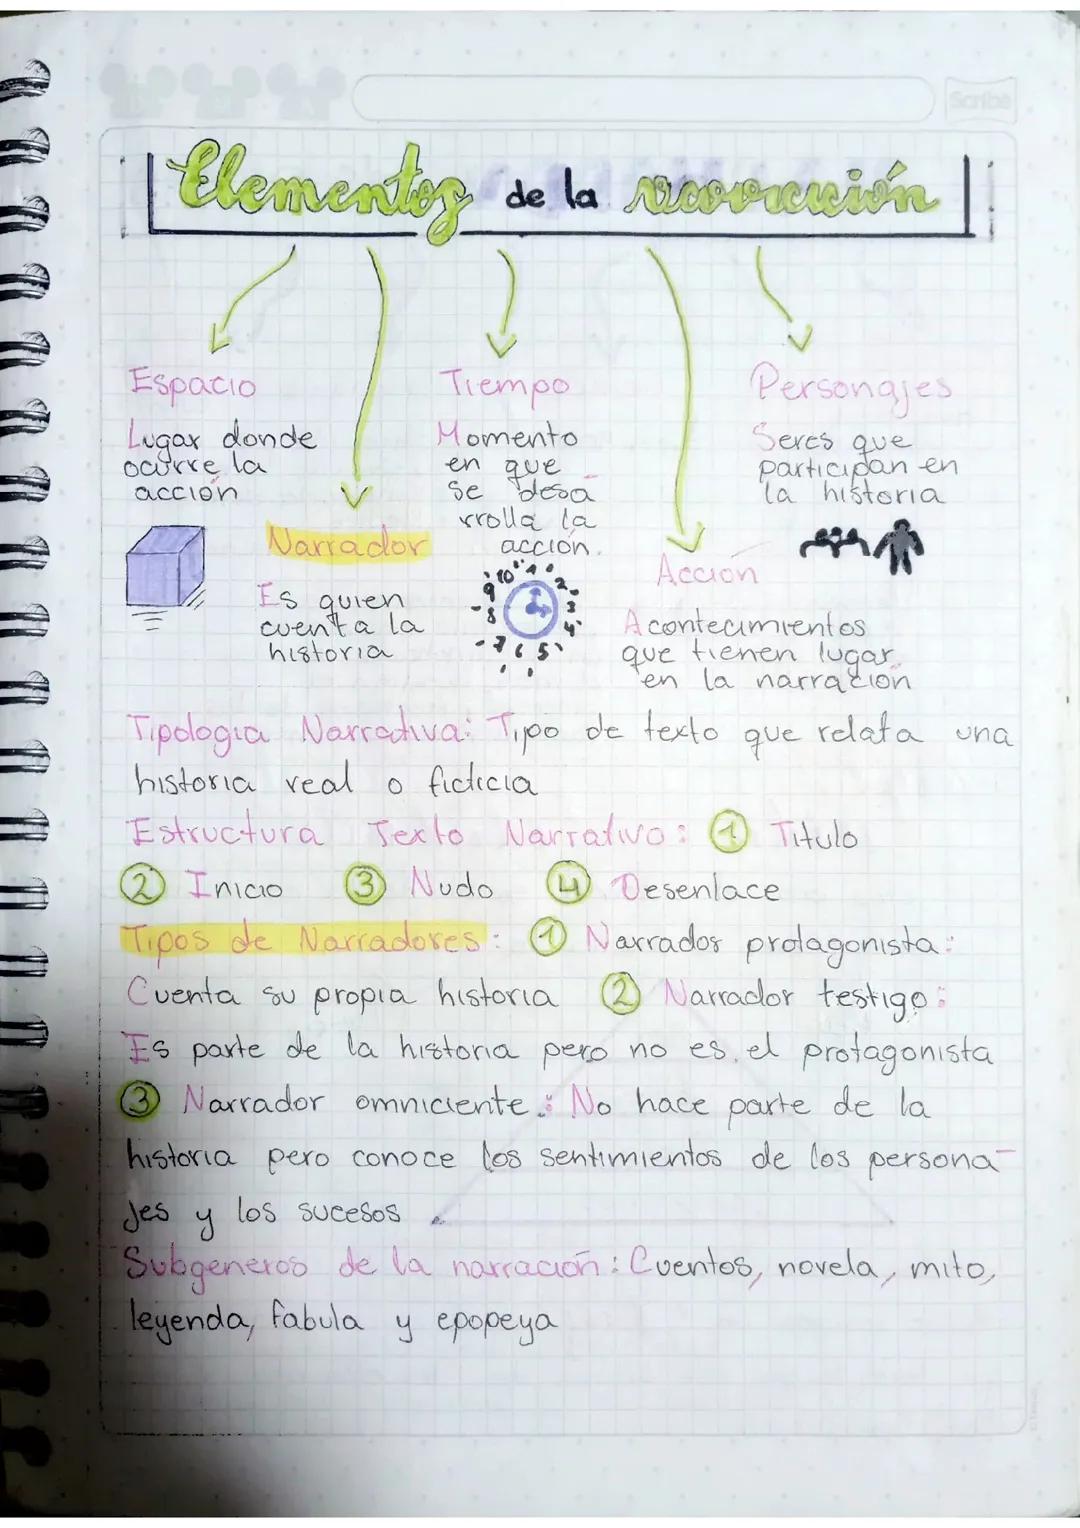 Scribe
Elementos de la narración
Espacio
Lugar donde
ocurre la
acción
Narrador
Es quien
cuenta la
historia
Tiempo
Momento
en que
se desa
rrolla la
acción.
10 11 1 2 3 4 5 6 7 8 9
Acción
Acontecimientos
que tienen lugar
en la narración
Personajes
Seres que
participan en
la historia
Tipologia Narrativa: Tipo de texto que relata una
historia real o ficticia
Estructura Texto Narrativo: 1 Titulo
2 Inicio 3 Nudo 4 Desenlace
Tipos de Narradores: 1 Narrador protagonista:
Cuenta su propia historia 2 Narrador testigo:
Es parte de la historia pero no es el protagonista
3 Narrador omniciente: No hace parte de la
historia pero conoce los sentimientos de los persona-
jes y los sucesos
Subgeneros de la narración: Cuentos, novela, mito,
leyenda, fabula y epopeya